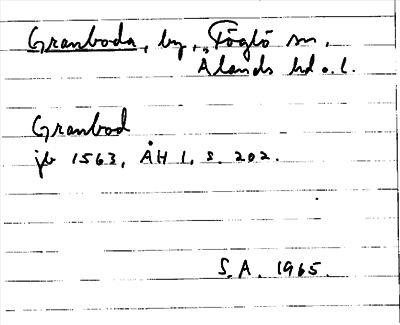 Granboda, by, Föglö sn,
Ålands hd o. l.
Granbod
jb 1563, ÅH 1, s. 202.
S.A. 1965.